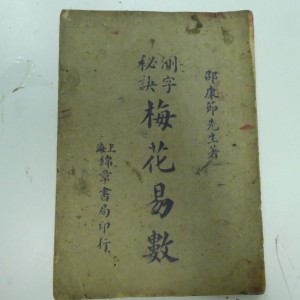 邵康節先生著
測字秘訣
梅花易數
上海錦章書局印行